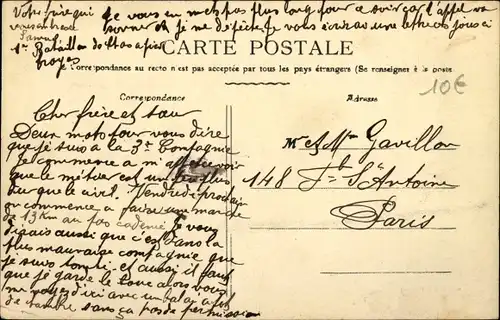 Votre frère qui je vous en mets pas plus long pour ce soir car l'appel va
vous embrasse sonner et je me dépêche je vous écrirai une lettre
1er Bataillon
Troyes
CARTE POSTALE
La Correspondance au recto n'est pas acceptée par tous les pays étrangers (Se renseigner à la poste
10€
Correspondance
Adresse
Cher frère et sœur
Deux mots pour vous dire
que je suis à la 3e Compagnie
je commence à m'apercevoir
que le métier est un peu plus
dur que le civil. Vendredi prochain
on commence à faire une marche
de 13 Km au pas cadencé je vous
dirais aussi que c'est dans la
plus mauvaise compagnie que
je suis tombé et aussi il faut
que je garde le
me voyez d'ici avec un balai
sans ça pas de permission
Mr et Mme Gavillon
148 Fg St Antoine
Paris